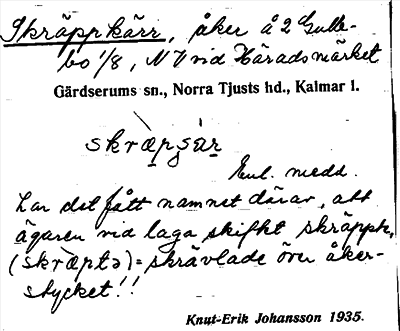 Skräppkärr, åker å 2 Gulle-
bo 1/8, NV vid Häradsmärket
Gärdserums sn., Norra Tjusts hd., Kalmar l.
skràpsá̀r
Enl. medd.
har det fått namnet därav, att
ägaren vid laga skiftet skräppt,
(skràptə) = skrävlade över åker-
stycket!!
Knut-Erik Johansson 1935.